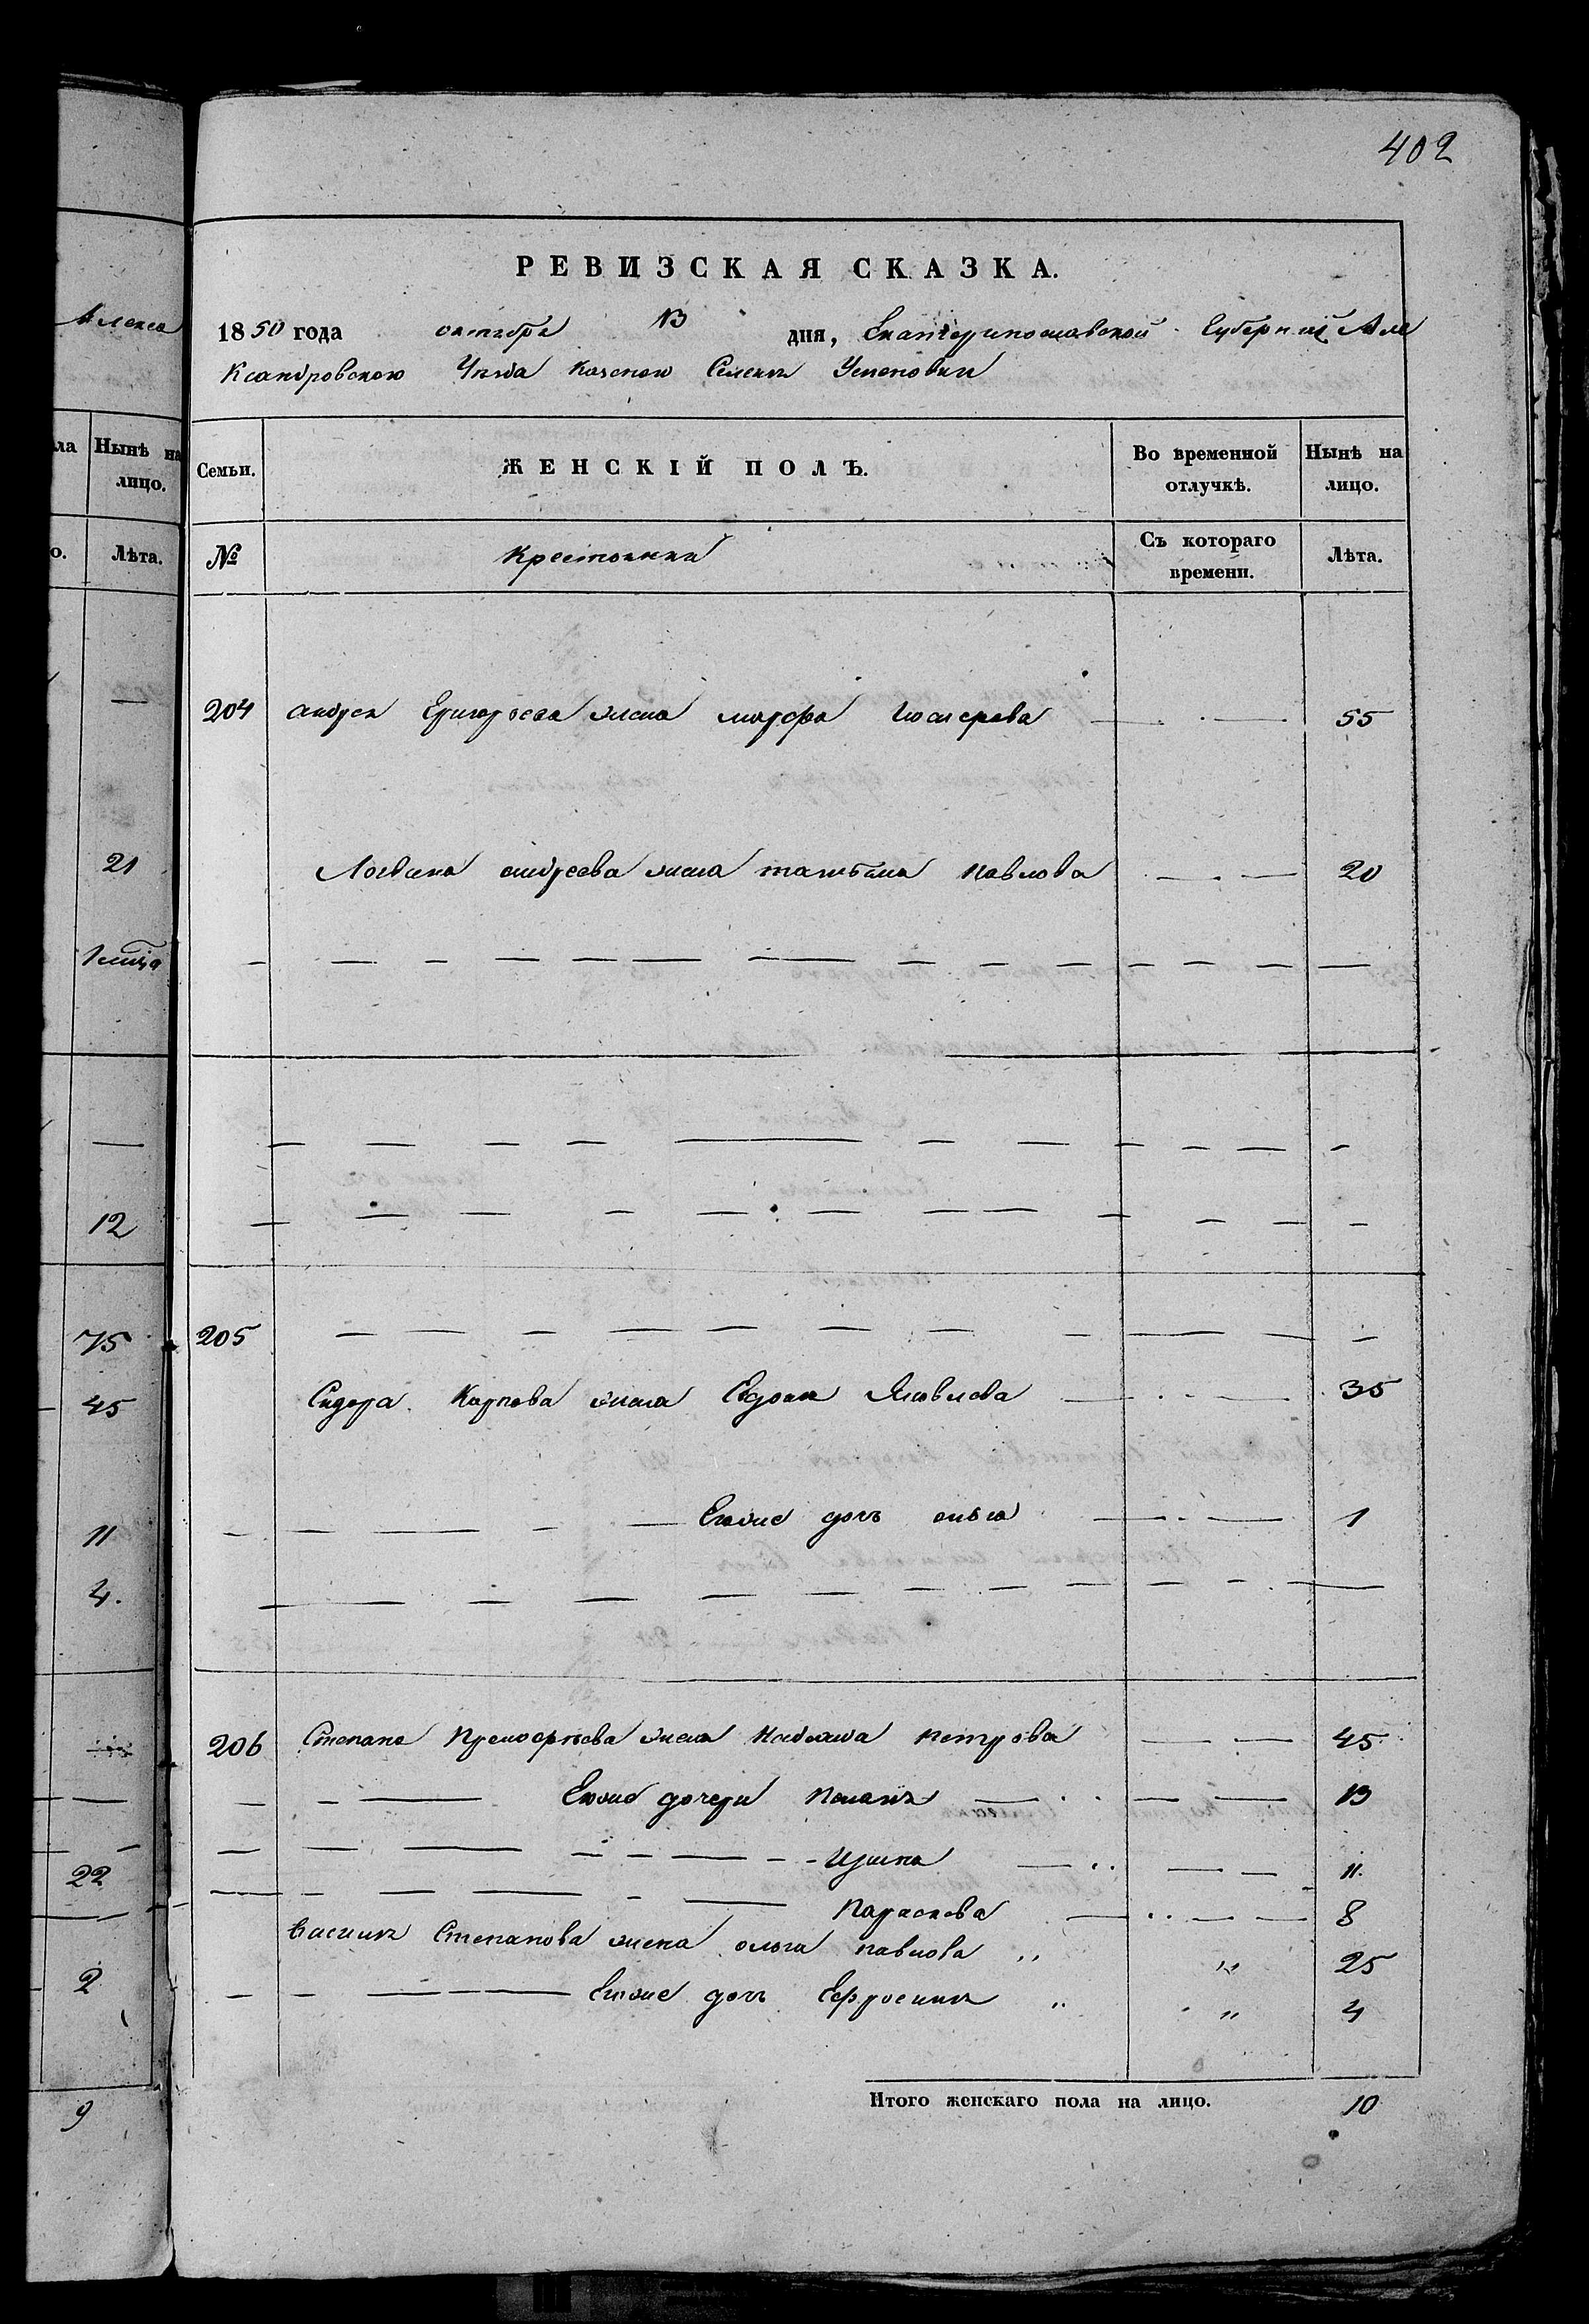 402
РЕВИЗСКАЯ СКАЗКА.
1850 года октября 13 дня, Екатеринославской Губерніи Але
ксандровского Уѣзда казеного Селенія Успеновки
Семьи. ЖЕНСКІЙ ПОЛЪ. Во временной отлучкѣ. Нынѣ на лицо.
№ Крестьянки Съ котораго времени. Лѣта.
204 андрея Григорьева жена марфа 55
Логвина андреева жена татьяна павлова 20
205
Сидора Карпова жена Евдокия Яковлева 35
Егоже дочь ольга 1
206 Степана Прокофьева жена Наталия петрова 45
Егоже дочери Пелагия 13
Ирина 11.
Параскева 8
василия Степанова жена ольга павлова „ „ 25
Егоже дочь Ефросиния „ „ 4
Итого женскаго пола на лицо. 10
Алекса
ла Нынѣ на лицо.
о. Лѣта.
21
12
75
45
11
4.
22
2
9